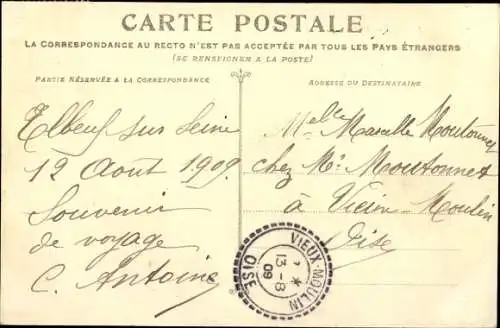 CARTE POSTALE
LA CORRESPONDANCE AU RECTO N'EST PAS ACCEPTÉE PAR TOUS LES PAYS ÉTRANGERS
(SE RENSEIGNER A LA POSTE)
PARTIE RÉSERVÉE A LA CORRESPONDANCE
Elbeuf sur Seine
12 Août 1909.
Souvenir
de voyage
C. Antoine
ADRESSE DU DESTINATAIRE
Melle Marcelle Moutonnet
chez Mr Moutonnet
à Vieux-Moulin
Oise
VIEUX-MOULIN
13-8
09
OISE